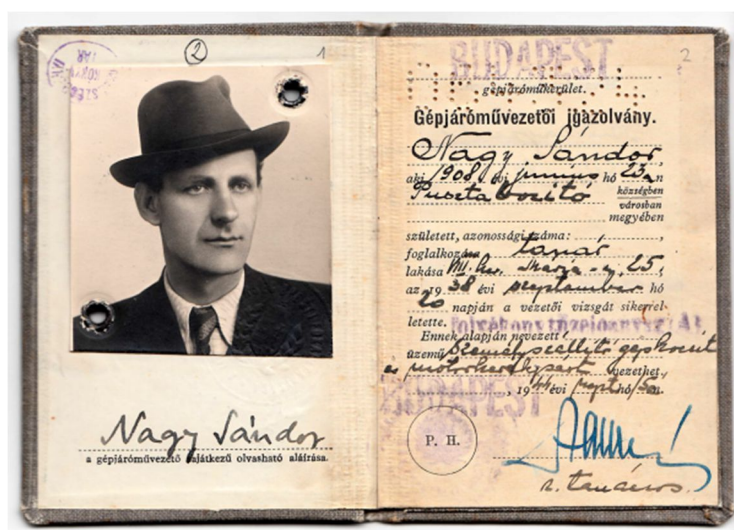 2 1
Nagy Sándor
a gépjáróművezető sajátkezű olvasható aláírása.
2
BUDAPEST
gépjáróműkerület.
Gépjáróművezetői igazolvány.
Nagy Sándor,
aki 1908 évi június hó 23n
Puszta községben
városban
megyében
született, azonossági száma:
foglalkozása tanár
lakása VIII. ker. u. 25,
az 1938 évi szeptember hó
20 napján a vezetői vizsgát sikerrel
letette.
Ennek alapján nevezett
üzemű személyszállító gépkocsit
és motorkerékpárt vezethet,
1944 évi szept hó 5n.
BUDAPEST
P. H.
tanácsos.